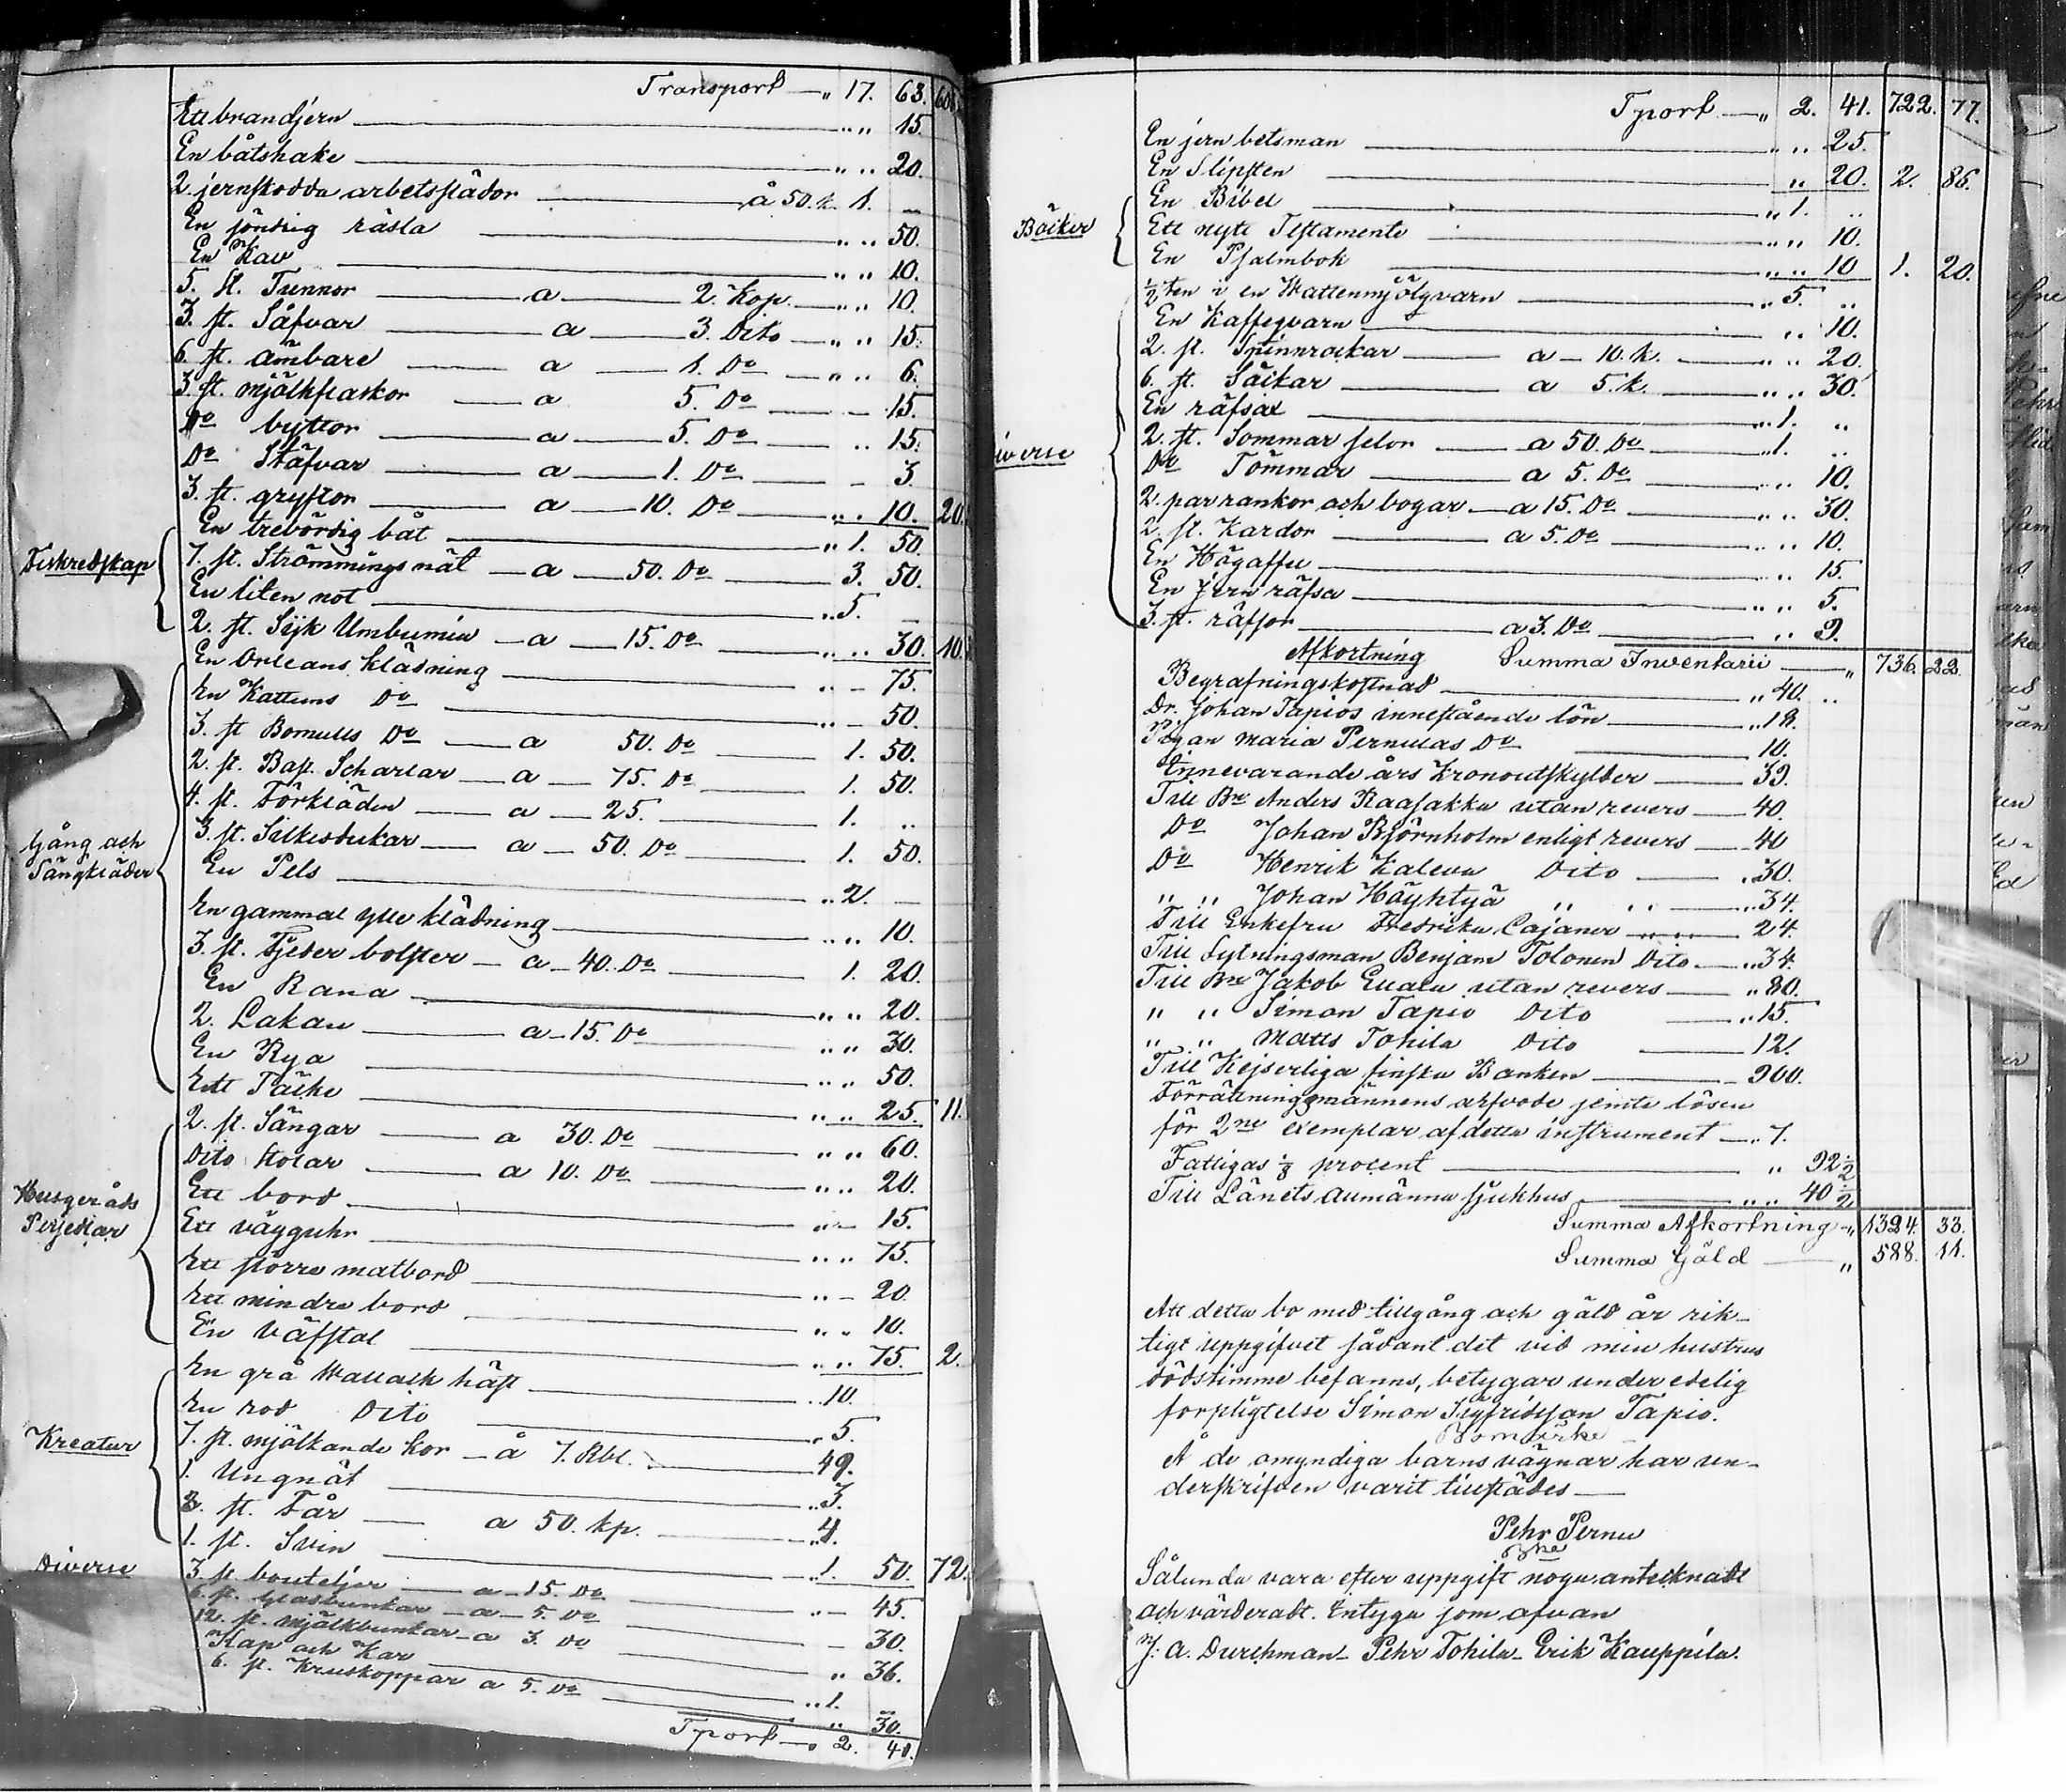 Transport — „ 17. 63. 60
Ett brandjern — „ „ 15.
En båtshake — „ „ 20.
2. jernskodda arbetsslädor — å 50. k. 1. —
En söndrig räsla — „ „ 50.
En Kav — „ „ 10.
5. st. Tunnor — a — 2. Kop. — „ „ 10.
3. st. Såfvar — a — 3. Dito — „ „ 15.
6. st. ämbare — a — 1. Do — „ „ 6.
3. st. mjölkflaskor — a 5. Do — 15.
Do byttor — a — 5. Do — „ 15.
Do Stäfvar — a — 1. Do — 3
3. st. grytor — a — 10. Do — „ „ 10. 20.
Fiskredskap
En trebördig båt — „ 1. 50.
7. st. Strömmings nät — a — 50. Do — 3. 50.
En liten not — „ 5. —
2. st. Sijk — a — 15. Do — „ „ 30. 10.
Gång och Sängkläder
En Orleans klädning — „ — 75.
En Kattuns Do — „ — 50.
3. st Bomulls Do — a 50. Do — 1. 50.
2. st. Scharlar — a — 75. Do — 1. 50.
4. st. Förkläden — a — 25. — 1. „
3. st. Silkesdukar — a — 50. Do — 1. 50.
En Pels — „ 2. —
En gammal ylle klädning — „ „ 10.
3. st. Fjeder bolster — a — 40. Do — 1. 20.
En Rana — „ „ 20.
2. Lakan — a — 15. Do — „ „ 30.
En Rya — „ „ 50.
Ett Täcke — „ „ 25. 11.
Husgeråds Persedlar
2. st. Sängar — a 30. Do — „ „ 60.
Dito stolar — a 10. Do — „ „ 20.
Ett bord — „ — 15.
Ett vägguhr — „ „ 75.
Ett större matbord — „ — 20
Ett mindre bord — „ „ 10.
En Väfstol — „ „ 75. 2.
Kreatur
En grå Wallack häst — „ 10.
En röd Dito — „ 5.
7. st. mjölkande kor — å 7. Rbl. — 49.
1. Ungnöt — „ 3.
8. st. Får — a 50. kp. — „ 4.
1. st. Svin — „ 1. 50. 72.
Diverse
3. st. bouteljer — a — 15. Do — „ — 45.
6. st. Glasbunkar — a — 5. Do — — 30.
12. st. mjölkbunkar — a 3. Do — „ 36.
Kap och Kar — „ 1. —
6. st. Kruskoppar a 5. Do — „ 30.
Tport — „ 2. 41.
Tport — „ 2. 41. 722. 77.
En jern betsman — „ „ 25.
En Slipsten — „ 20. 2. 86.
Böcker
En Bibel — „ 1. „
Ett nytt Testamente — „ „ 10.
En Psalmbok — „ „ 10 1. 20.
Diverse
½ten i en Wattenmjölqvarn — „ 5. „
En Kaffeqvarn — „ 10.
2. st. Spinnrockar — a — 10. k. — „ „ 20.
6. st. Säckar — a 5. k. — „ „ 30.
En räfsax — „ 1. „
2. st. Sommar selor — a 50. Do — „ 1. „
Do Tömmar — a 5. Do — „ „ 10.
2. par rankor och bogar — a 15. Do — „ „ 30.
2. st. Kardor — a 5. Do — „ „ 10.
En Högaffel — „ „ 15.
En Jern räfsa — „ „ 5.
3. st. räfsor — a 3. Do — „ 9.
Afkortning Summa Inventarii — „ 736. 22.
Begrafningskostnad — „ 40. „
Dr. Johan Tapios innestående lön — „ 18.
Pigan Maria Pernulas Do — 10.
Innevarande års Kronoutskylder — 39.
Till Bn Anders Raasakka utan revers — 40.
Do Johan Björnholm enligt revers — 40
Do Henrik Kaleva Dito — „ 30.
„ „ Johan Häyhtyä „ „ — „ 34.
Till Enkefru Fredrika Cajaner „ „ — 24.
Till Lytningsman Benjam Tolonen Dito — „ 34.
Till Bn Jakob Euala utan revers — „ 80.
„ „ Simon Tapio Dito — „ 15.
„ „ Matts Tohila Dito — 12.
Till Kejserliga finska Banken — 900.
Förrättningsmännens arfvode jemte lösen
för 2ne exemplar af detta instrument — „ 7.
Fattigas ⅛ procent — „ 92 ½
Till Länets allmänna sjukhus — „ „ 40 ½
Summa Afkortning — „ 1324. 33.
Summa Gäld — „ 588. 11.
Att detta bo med tillgång och gäld är rik-
tigt uppgifvet sådant det vid min hustrus
dödstimme befanns, betygar under edelig
forpligtelse Simon Sigfridsson Tapio.
Bomärke
Å de omyndiga barns vägnar har un-
derskrifven varit tillstädes —
Pehr Pernu
Bne
Sålunda vara efter uppgift noga antecknadt
och värderadt. Intyga som ofvan
J. A. Durchman — Pehr Tohila — Erik Kauppila.